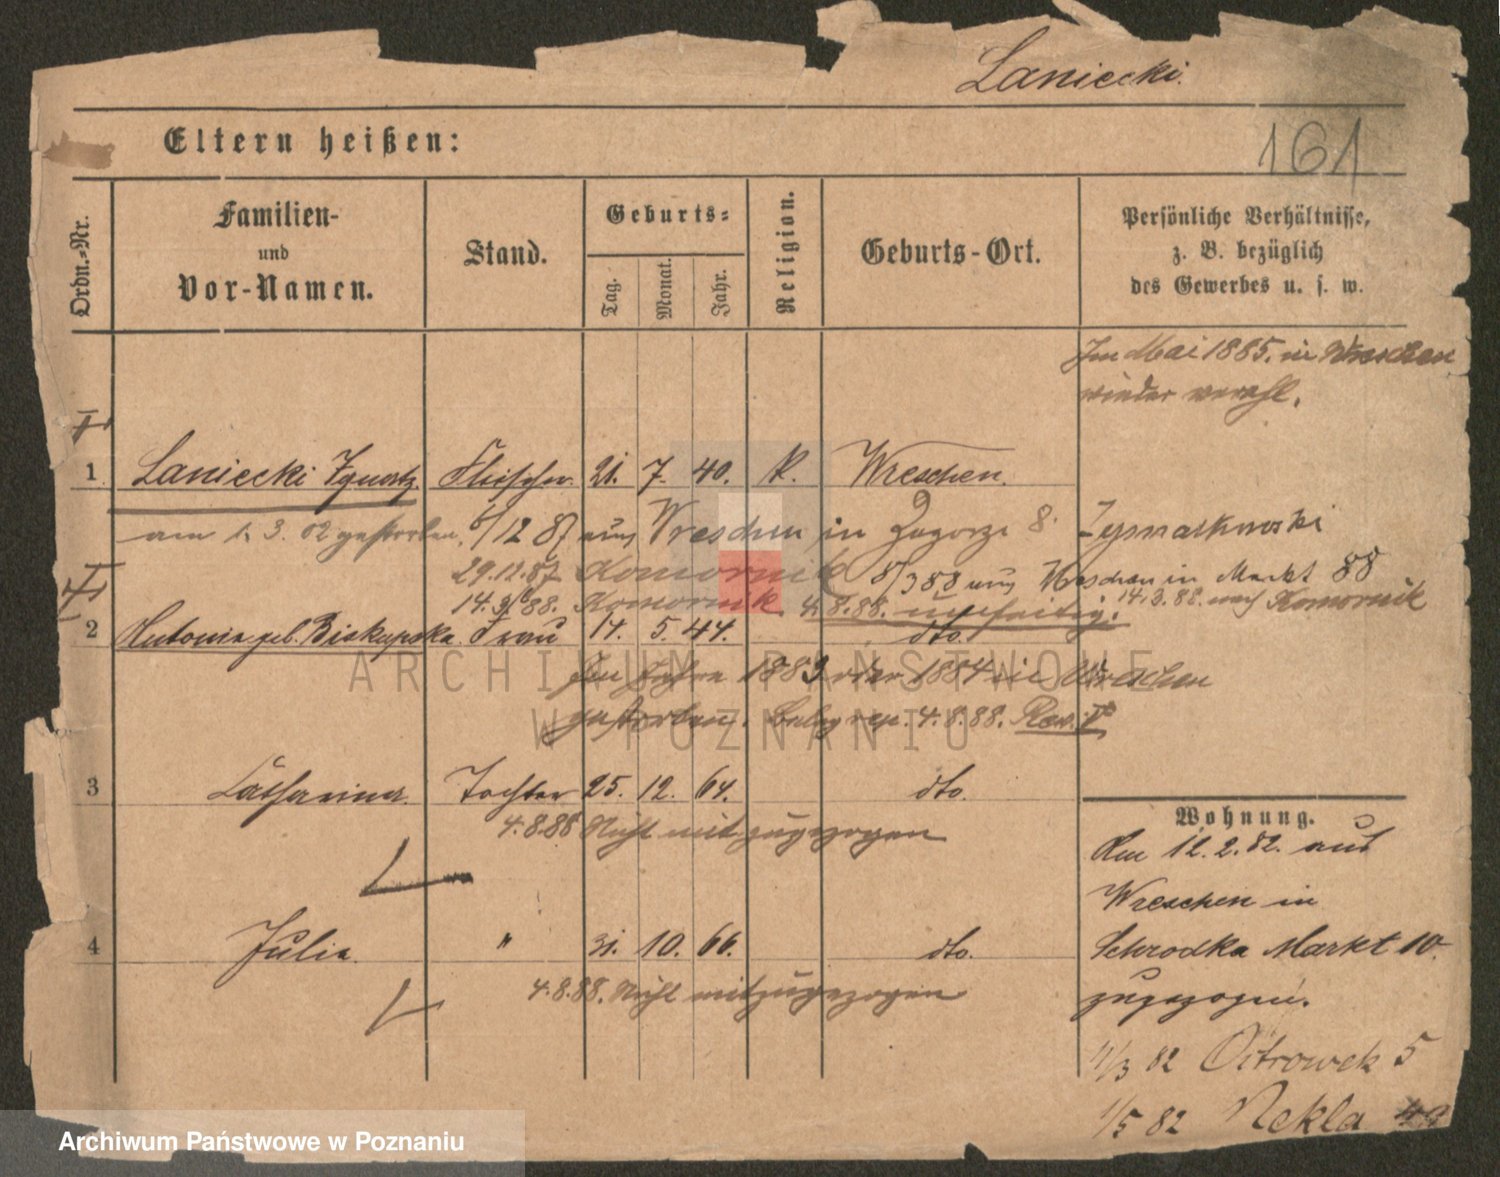 Laniecki.
161
Eltern heißen:
Ordn.-Nr.
Familien-
und
Vor-Namen.
Stand.
Geburts-
Tag.
Monat.
Jahr.
Religion.
Geburts-Ort.
Persönliche Verhältnisse,
z. B. bezüglich
des Gewerbes u. s. w.
Im Mai 1885. in Wreschen
wieder verehl.
1 Laniecki Ignatz. Fleischer. 21. 7. 40. K. Wreschen.
am 1. 3. 02 gestorben. 6/12 87 aus Wreschen in Zagorze 8. Szymatkowski
29.12.87 Komornik 8/3 88 aus Wreschen in Markt 88
14.3. 88. Komornik. 4.8.88. 14.3.88. nach Komornik
2 Antonie geb. Biskupska. Frau 14. 5. 44. dto.
Im Jahre 1883 oder 1884 in Wreschen
gestorben. 4.8.88. Rev. I
3 Catharina. Tochter 25. 12. 64. dto.
4.8.88 Nicht mit zugezogen
4 Julia. " 31. 10. 66. dto.
4.8.88. Nicht mitzugezogen
Wohnung.
Am 12.2.82. aus
Wreschen in
Schrodka Markt 10.
zugezogen.
11/3 82 Ostrowek 5
1/5 82 Nekla
ARCHIWUM PAŃSTWOWE
W POZNANIU
Archiwum Państwowe w Poznaniu